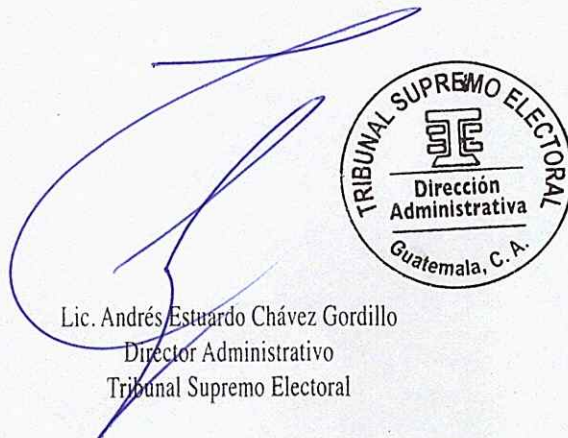 TRIBUNAL SUPREMO ELECTORAL
Dirección
Administrativa
Guatemala, C. A.
Lic. Andrés Estuardo Chávez Gordillo
Director Administrativo
Tribunal Supremo Electoral